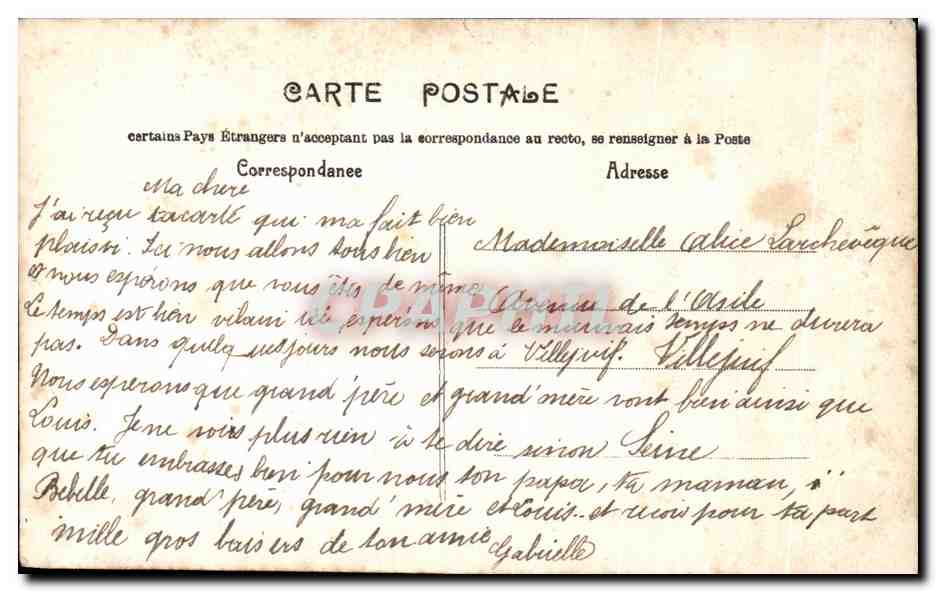 CARTE POSTALE
Certains Pays Étrangers n'acceptant pas la correspondance au recto, se renseigner à la Poste
Correspondance
Adresse
Ma chere
J'ai reçu ta carte qui ma fait bien
plaisir. Ici nous allons tous bien
et nous espérons que vous êtes de même
Le temps est bien vilain esperons que le mauvais temps ne durera
pas. Dans quelques jours nous serons à Villejuif.
Nous esperons que grand'père et grand'mère vont bien ainsi que
Louis. Je ne vois plus rien à te dire sinon
que tu embrasses bien pour nous ton papa, ta maman,
Bebelle, grand'père, grand'mère et Louis et recois pour ta part
mille gros baisers de ton amie
Gabrielle
Mademoiselle Alice Larchevêque
Avenue de l'Asile
Villejuif
Seine